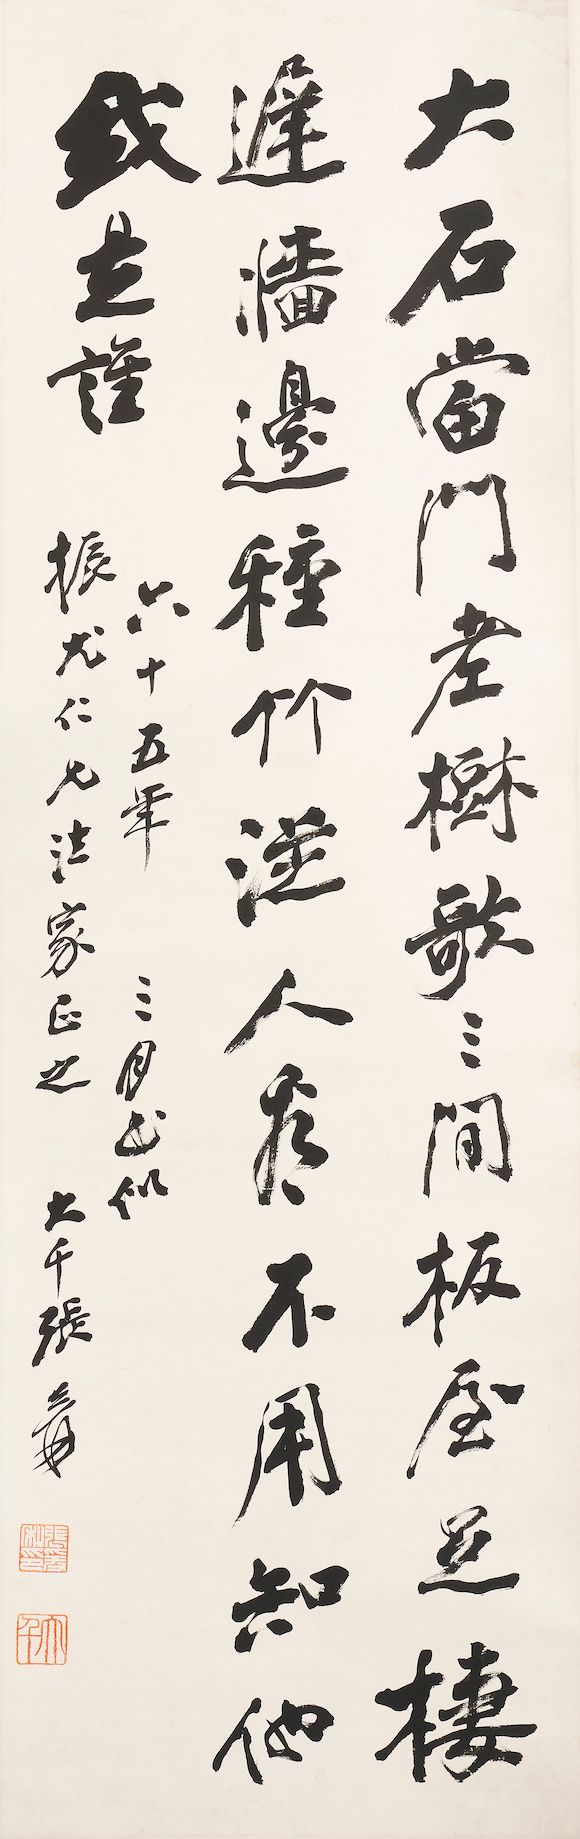 大石當門老樹欹三間板屋足棲
遲牆邊種竹從人看不用知他
我是誰
六十五年三月書似
振尤仁兄法家正之 大千張爰
張爰私印
大千